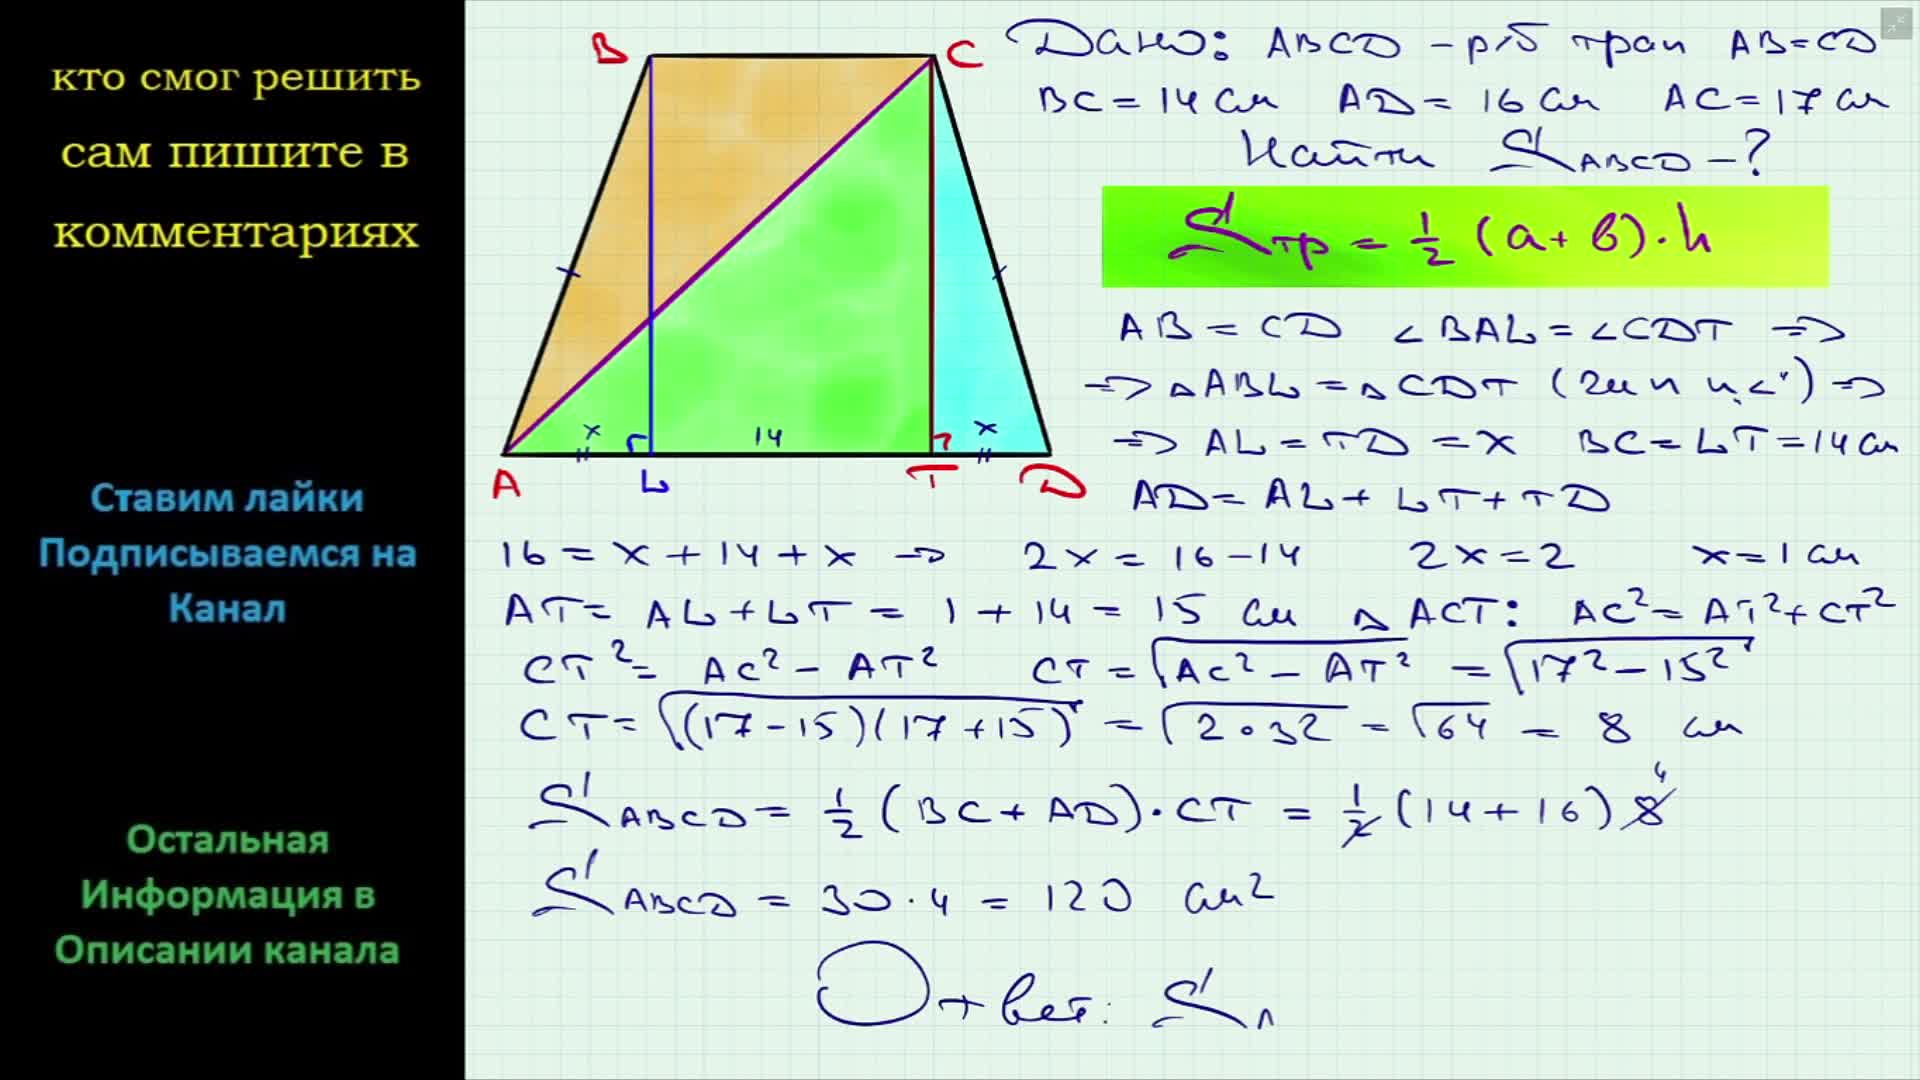 кто смог решить
сам пишите в
комментариях
Ставим лайки
Подписываемся на
Канал
Остальная
Информация в
Описании канала
B C
x 14 x
A L T D
Дано: ABCD – р/б трап AB = CD
BC = 14 см AD = 16 см AC = 17 см
Найти S_ABCD – ?
S_тр = 1/2 (a + b) · h
AB = CD ∠BAL = ∠CDT =>
=> △ABL = △CDT ( ) =>
=> AL = TD = x BC = LT = 14 см
AD = AL + LT + TD
16 = x + 14 + x => 2x = 16 – 14 2x = 2 x = 1 см
AT = AL + LT = 1 + 14 = 15 см △ACT: AC² = AT² + CT²
CT² = AC² – AT² CT = √(AC² – AT²) = √(17² – 15²)
CT = √((17 – 15)(17 + 15)) = √(2 · 32) = √64 = 8 см
S_ABCD = 1/2 (BC + AD) · CT = 1/2 (14 + 16) 8 4
S_ABCD = 30 · 4 = 120 см²
Ответ: S